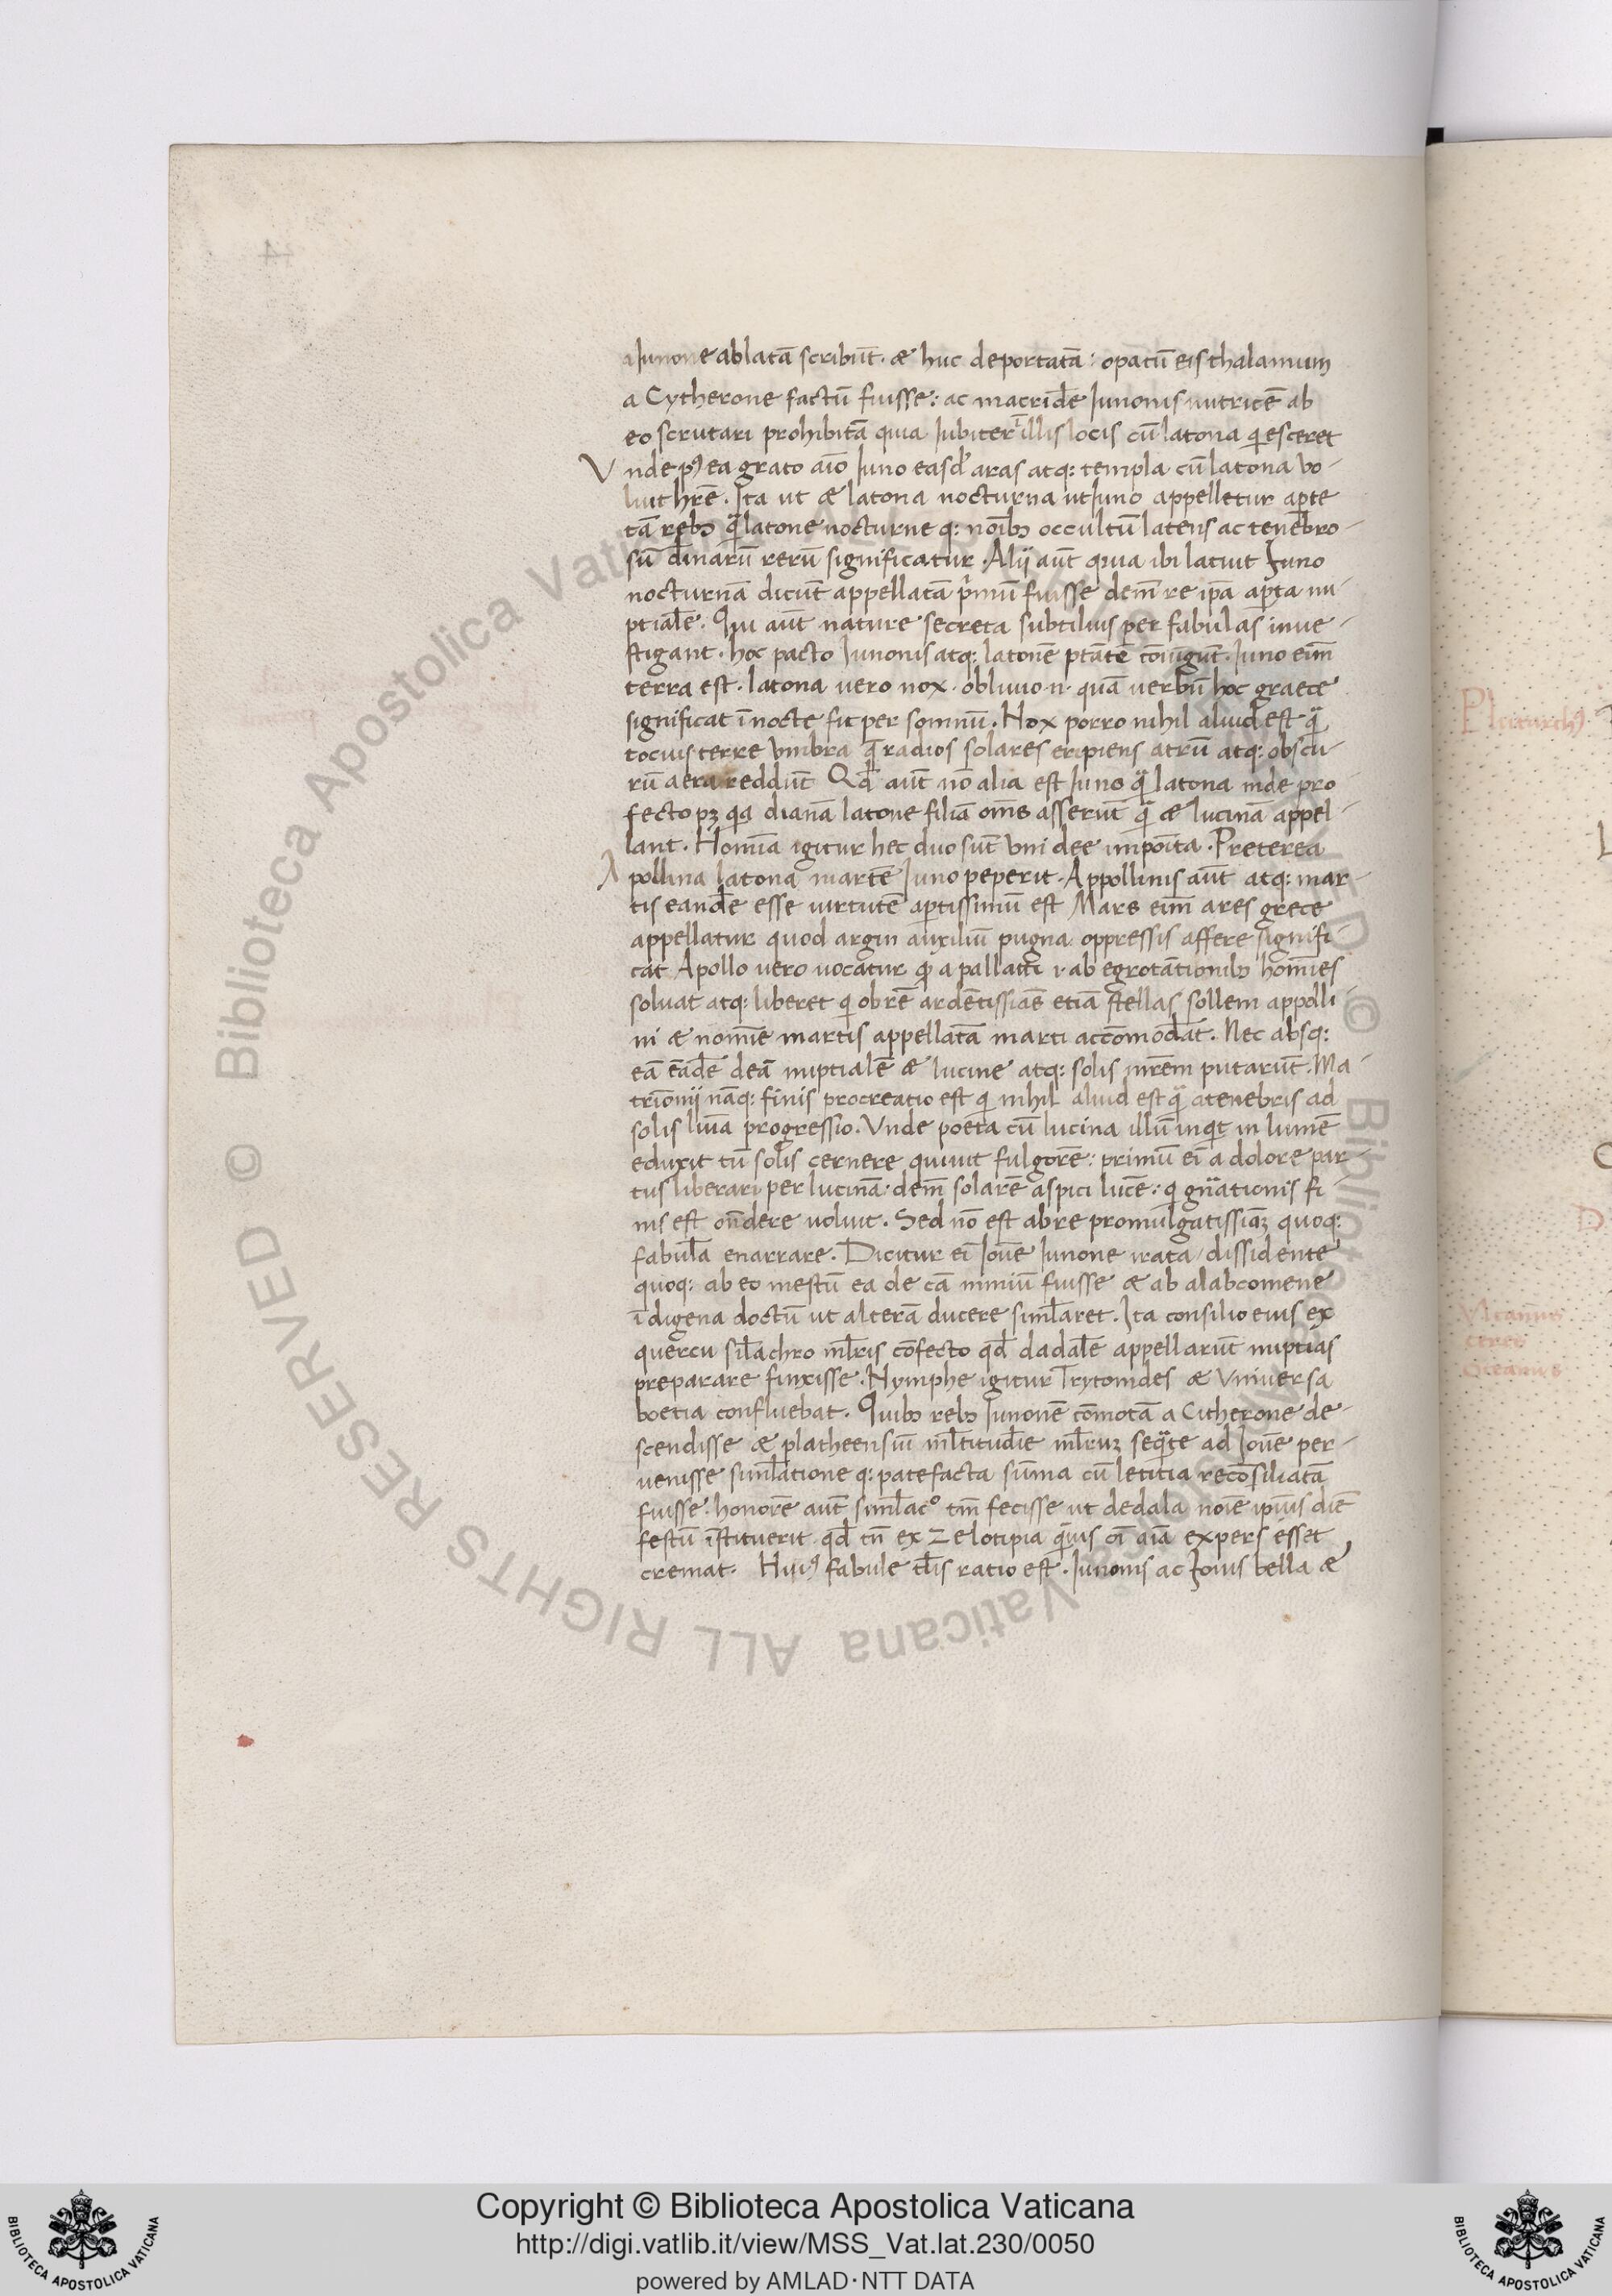 a Iunone ablatā scribūt. & huc deportatā: opacū eis thalamum
a Cytherone factū fuisse: ac macridē Iunonis nutricē ab
eo scrutari prohibitā quia Iubiter ī illis locis cū latona qiesceret
Vnde pꝰea grato aīo Iuno easd' aras atq: templa cū latona vo-
luit hr̄e. Ita ut & latona nocturna ut Iuno appelletur apte
tā rebꝫ q̄ latone nocturne q: noībꝫ occultū latens ac tenebro-
sū dinarū rerū significatur. Alij aūt quia ibi latuit Iuno
nocturnā dicūt appellatā p̄mū fuisse dem̄ re ip̄a apta nu-
ptialē. Qui aūt nature secreta subtilius per fabulas inve-
stigant. hoc pacto Iunonis atq: latonē ptātē cōiūgūt. Iuno eīm
terra est. latona vero nox. oblivio .n. quā verbū hoc graece
significat ī nocte fit per somnū. Nox porro nihil aliud est q̄
tocius terre vmbra q̄ radios solares eripiens atrū atq: obscu-
rū aera reddūt Qd̄ aūt nō alia est Iuno q̄ latona inde pro
fecto pꝫ qa dianā latone filiā om̄s asserūt q̄ & lucinā appel-
lant. Nomīa igitur hec duo sūt vni dee impoīta. Preterea
Apollina latona martē Iuno peperit. Appollinis aūt atq: mar-
tis eandē esse virtutē aptissimū est Mars eīm ares grece
appellatur quod argin auxiliū pugna oppressis affere signifi-
cat Apollo vero vocatur qi a pallatti i. ab egrotātionibꝫ homīes
soluat atq: liberet qi obrē ardētissiāē etiā stellas sollem appolli-
ni & nomīe martis appellatā marti accōmodāt. Nec absq:
eā eādē deā nuptialē & lucine atq: solis mr̄em putarūt. Ma-
triōnij nāq: finis procreatio est qi nihil aliud est q̄ a tenebris ad
solis luīā progressio. Vnde poeta cū lucina illū inqit in lumē
eduxit tū solis cernere quiuit fulgorē: primū eī a dolore par-
tus liberari per lucinā. dem̄ solarē aspici lucē: qi gn̄ationis fi-
nis est on̄dere voluit. Sed nō est ab re promulgatissiāꝫ quoq:
fabulā enarrare. Dicitur eī Iouē Iunone irata / dissidente
quoq: ab eo mestū ea de cā nimiū fuisse & ab alabcomene
īdigena doctū ut alterā ducere siml̄aret. Ita consilio eius ex
quercu sil̄achro ml̄ris cōfecto qd̄ dadalē appellarūt nuptias
preparare finxisse. Nymphe igitur Trytonides & Vniversa
boetia confluebat. Quibꝫ rebꝫ Iunonē cōmotā a Citherone de-
scendisse & platheensiū ml̄titudīe ml̄ruꝫ seq̄te ad Iouē per-
venisse siml̄atione q: patefacta sūma cū letitia recōsiliatā
fuisse. honorē aūt siml̄acº tm̄ fecisse ut dedala noīe ipīus diē
festū īstituerit qd̄ tn̄ ex Zelotipia q̄uis oī aīa expers esset
cremat. Huiꝰ fabule tl̄is ratio est. Iunonis ac Iouis bella &
Copyright © Biblioteca Apostolica Vaticana
http://digi.vatlib.it/view/MSS_Vat.lat.230/0050
powered by AMLAD·NTT DATA